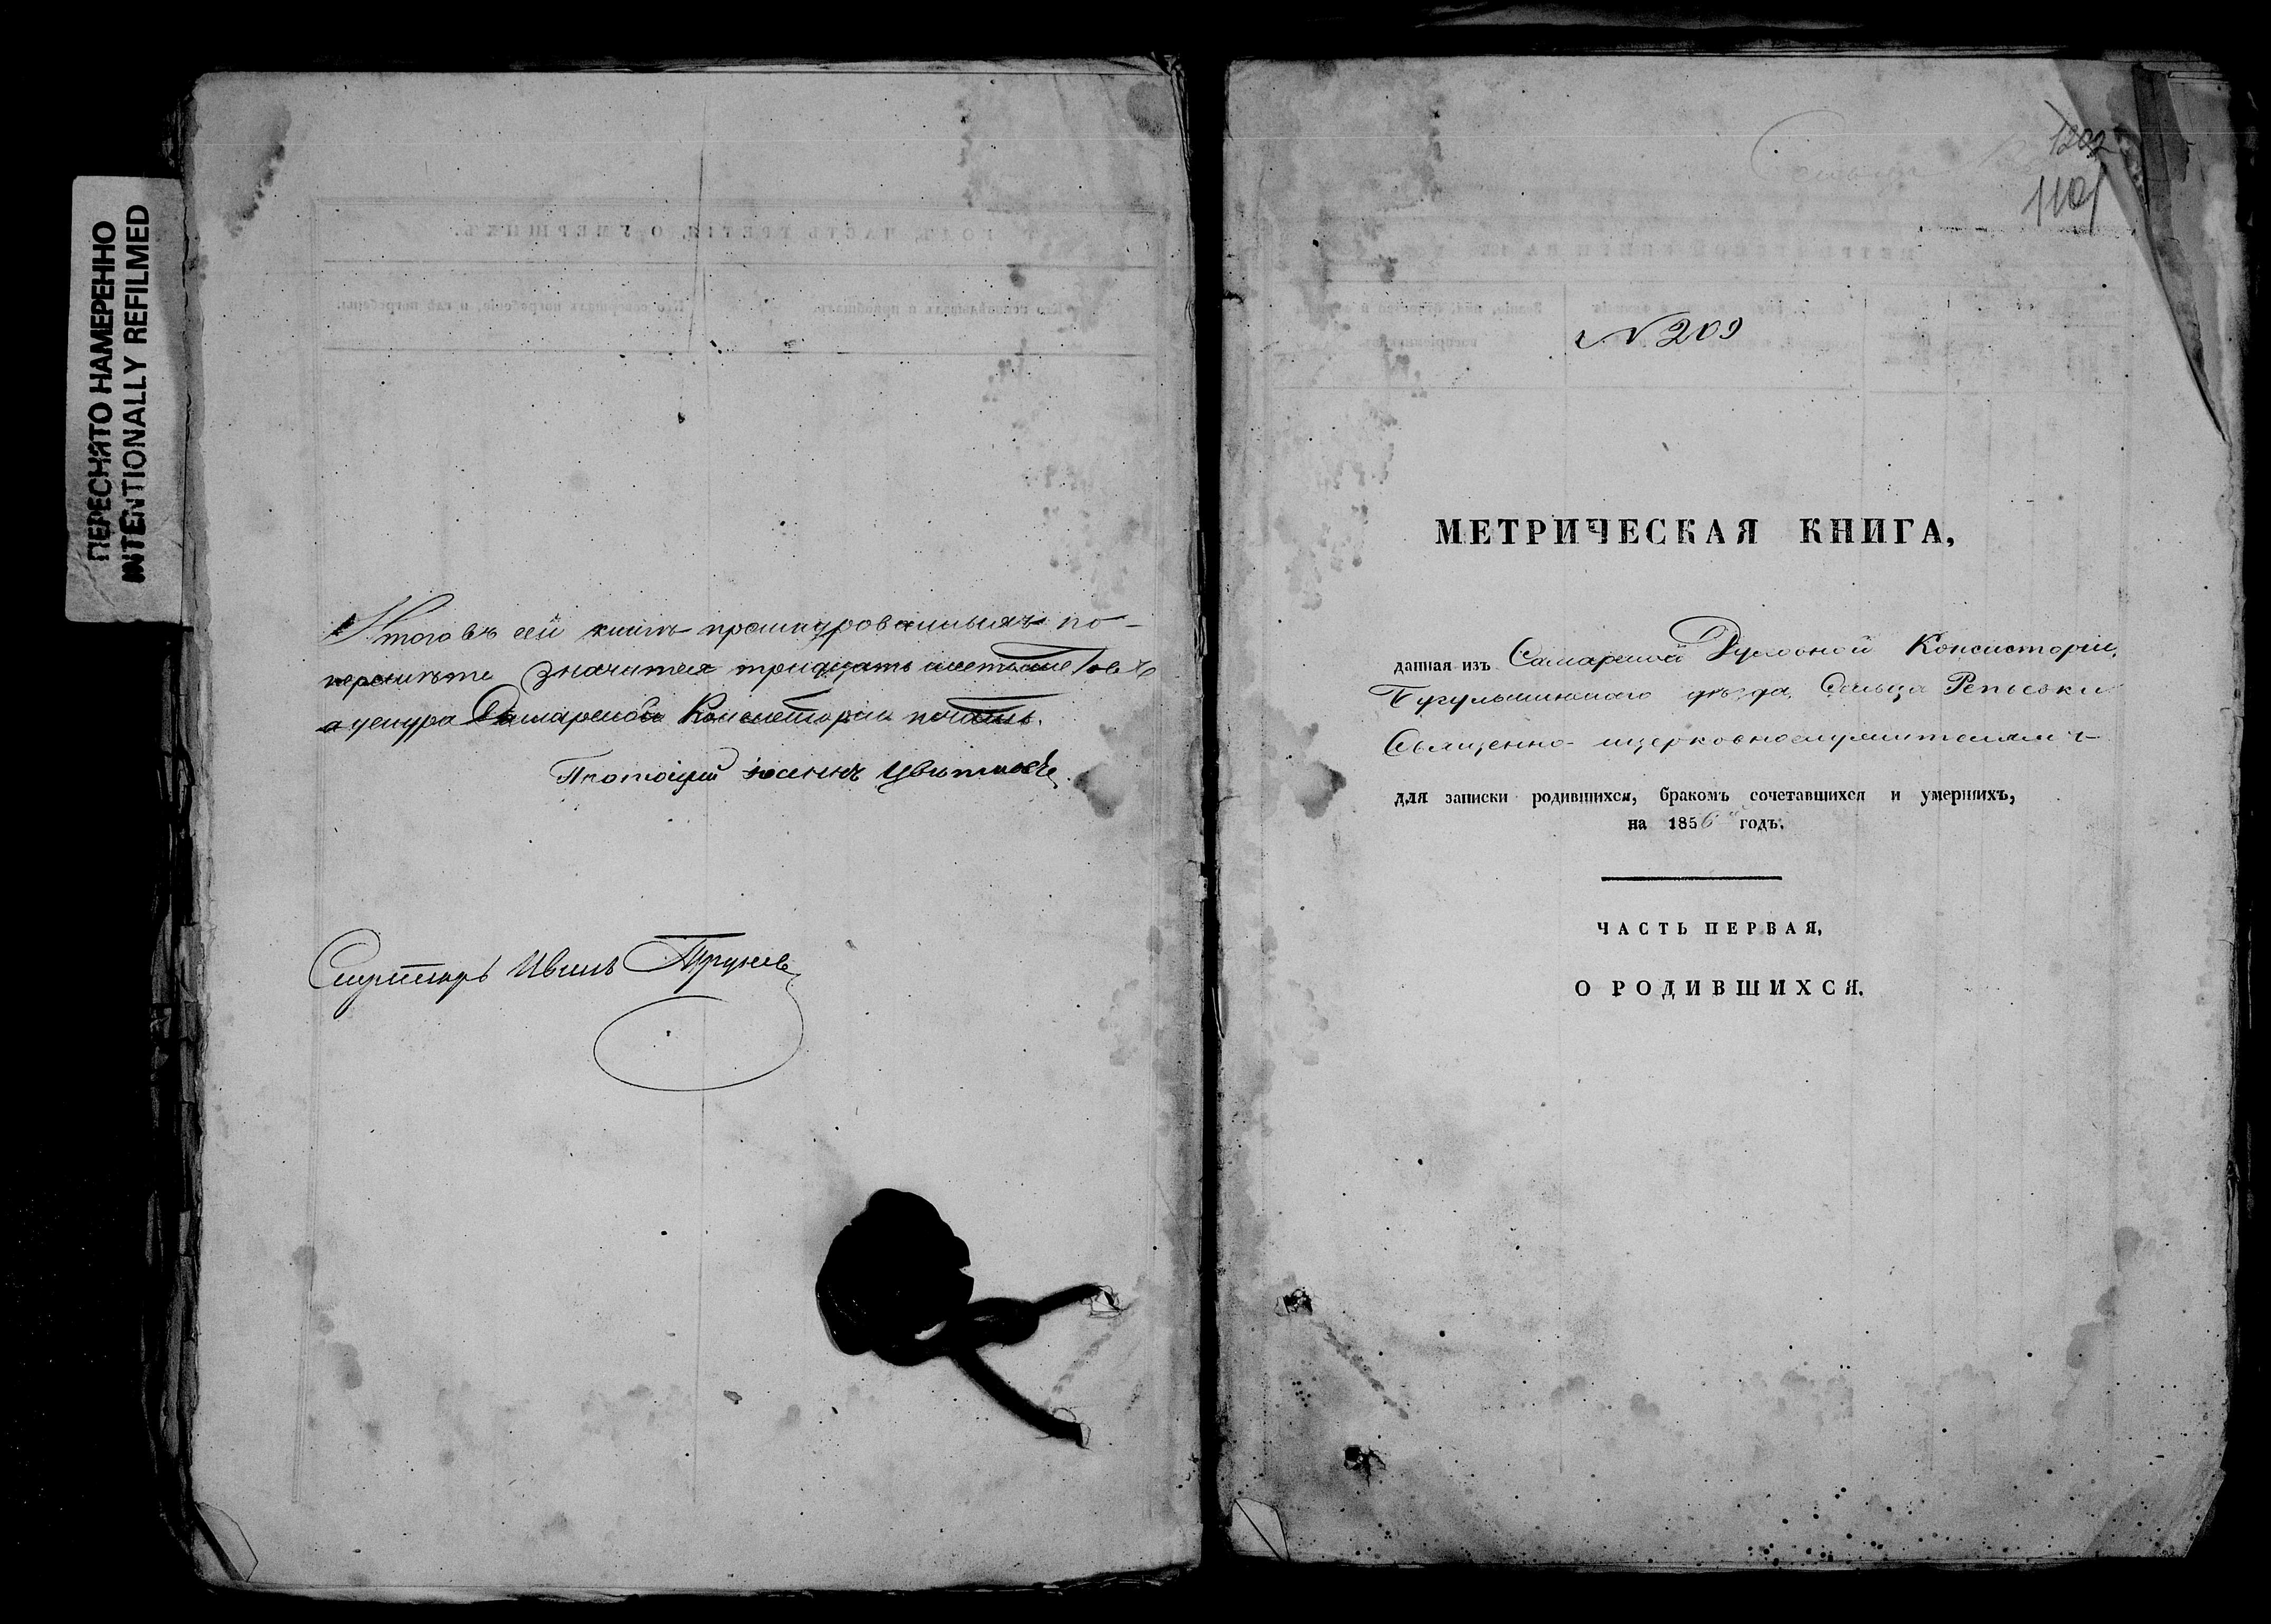 ПЕРЕСНЯТО НАМЕРЕННО
INTENTIONALLY REFILMED
Итого въ сей книгѣ прошнурованныхъ по-
нерешнѣте значится тридцать листовъ
а шнура Самарской Консисторіи печать.
Протоіерей Іоаннъ Цвѣтковъ
Секретарь Иванъ
1202
1101
№ 209
МЕТРИЧЕСКАЯ КНИГА,
данная изъ Самарской Духовной Консисторіи,
Бугульминскаго уѣзда, Сельца Репьевки
Священно-церковнослужителямъ
для записки родившихся, бракомъ сочетавшихся и умершихъ,
на 1856 годъ.
ЧАСТЬ ПЕРВАЯ,
О РОДИВШИХСЯ.